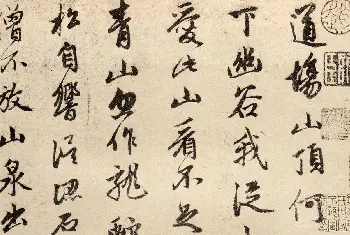 道場山頂何
下幽谷我從
愛此山看不足
青山忽作龍
松自響誤認石
僧不放山泉出